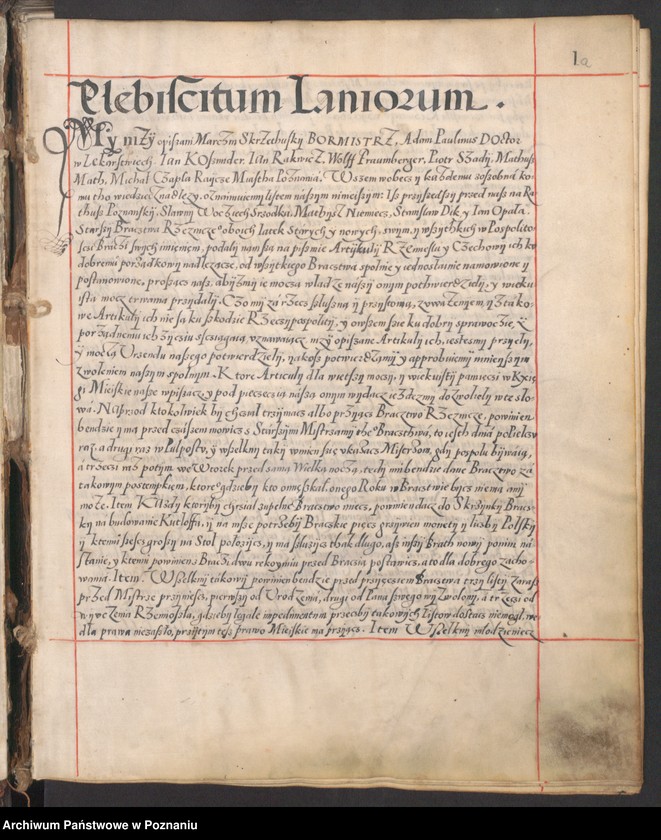 1a
Plebiscitum Laniorum.
My niży opisani Marczin Skrzethusky BORMISTRZ, Adam Paulinus DOctor
w Lekarstwiech. Jan KOsmider. Jan Rakwicz. Wolff Praumberger. Piotr Szady. Mathusz
Math. Michał Czapla Raycze Miastha Poznania. Wszem wobecz y każdemu zosobna ko-
mu tho wiedziecz należy. oznaimuiemy listem naszym nineiszym: Iż przyszedszy przed nasz na Ra-
thusz Poznański, Sławny Woyciech Srzodka. Mathysz Niemiecz, Stanisław Dik y Jan Opala.
Starszy Bractwa Rzeznicze° oboich Jatek Starych y nowych, swym, y wszytkich w Pospolito-
sci Braci swych imieniem, podaly nam są na pismie Artykuły RZemiesłu y Czechowy ich ku
dobremu porządkowy nadlezące, od wszytkiego Bractwa spolnie y iednostainie namowione y
postanowione, prosząc nasz, abyzmy ie moczą władze naszy onym pothwierdzieli, y wieku-
isth mocz trwana przydali. Czo my za rzecz słuszną y przystoyną, zowazeniem y
we Artikuły ich nie są ku szkodzie RZeczypospolity, y owszem
porządnemu ich życiu sciągaią, uznawaiącz niży opisane Artikuły ich, iestesmy przyely,
y moczą Urzendu naszego potwierdziely, iakosz potwierdzamy y approbuiemy ninieyszym
zwoleniem naszym spolnym. Ktore Articuły dla wietszy moczy, y wiekuistÿ pamięci w Kxię-
gi Mieiskie nasze wpisacz, y pod pieczęcią naszą onym wydacz dozwoliely w te sło-
wa. Naprzod ktokolwiek by chczał trzymacz albo przyącz Bractwo RZeznicze, powinien
bendzie y ma przed czasem mowicz z Starszym Mistrzami the° Bractwa, to iest dnia
raz, a drugi raz w Pulpostu, y wszelki taky wmien sie ukazacz Mistrzom, gdy pospołu bywaią,
a trzeci raz potym we Wtorek przed samą Wielką noczą, tedy mu bendzie dane Bractwo za
takowym postempkiem, ktore° gdzieby kto omieszkał, onego Roku w Bractwie bycz niema any
może. Item Każdy ktoryby chczał zupełne Bractwo miecz, powinien dacz do Skrzynky Bracz-
ky na budowanie Kutloffu, y na insze potrzeby Brackie pięcz grzywien monety y liczby Polsky
y ktemu szescz groszy na Stoł położycz, y ma służycz thak długo, asz inszy Brath nowy po nim na-
stanie, y ktemu powinien Braci, dwu rękoymiu przed Bracią postawicz, a to dla dobrego zacho-
wania. Item. Wszelki takowy powinien bendzie przed przyięciem Bractwa trzy listy zaraz
przed Mistrze przyniescz, pierwszy od Urodzenia, drugi od Pana swego wyzwolony, a trzeci od
wywczenia RZemiosła, gdzieby legale impedimentum przeciby takowych Listow dostacz niemogł, we-
dla prawa niezaszło, przytym tesz prawo Mieiskie ma przyącz. Item Wszelki młodzieniecz
Archiwum Państwowe w Poznaniu